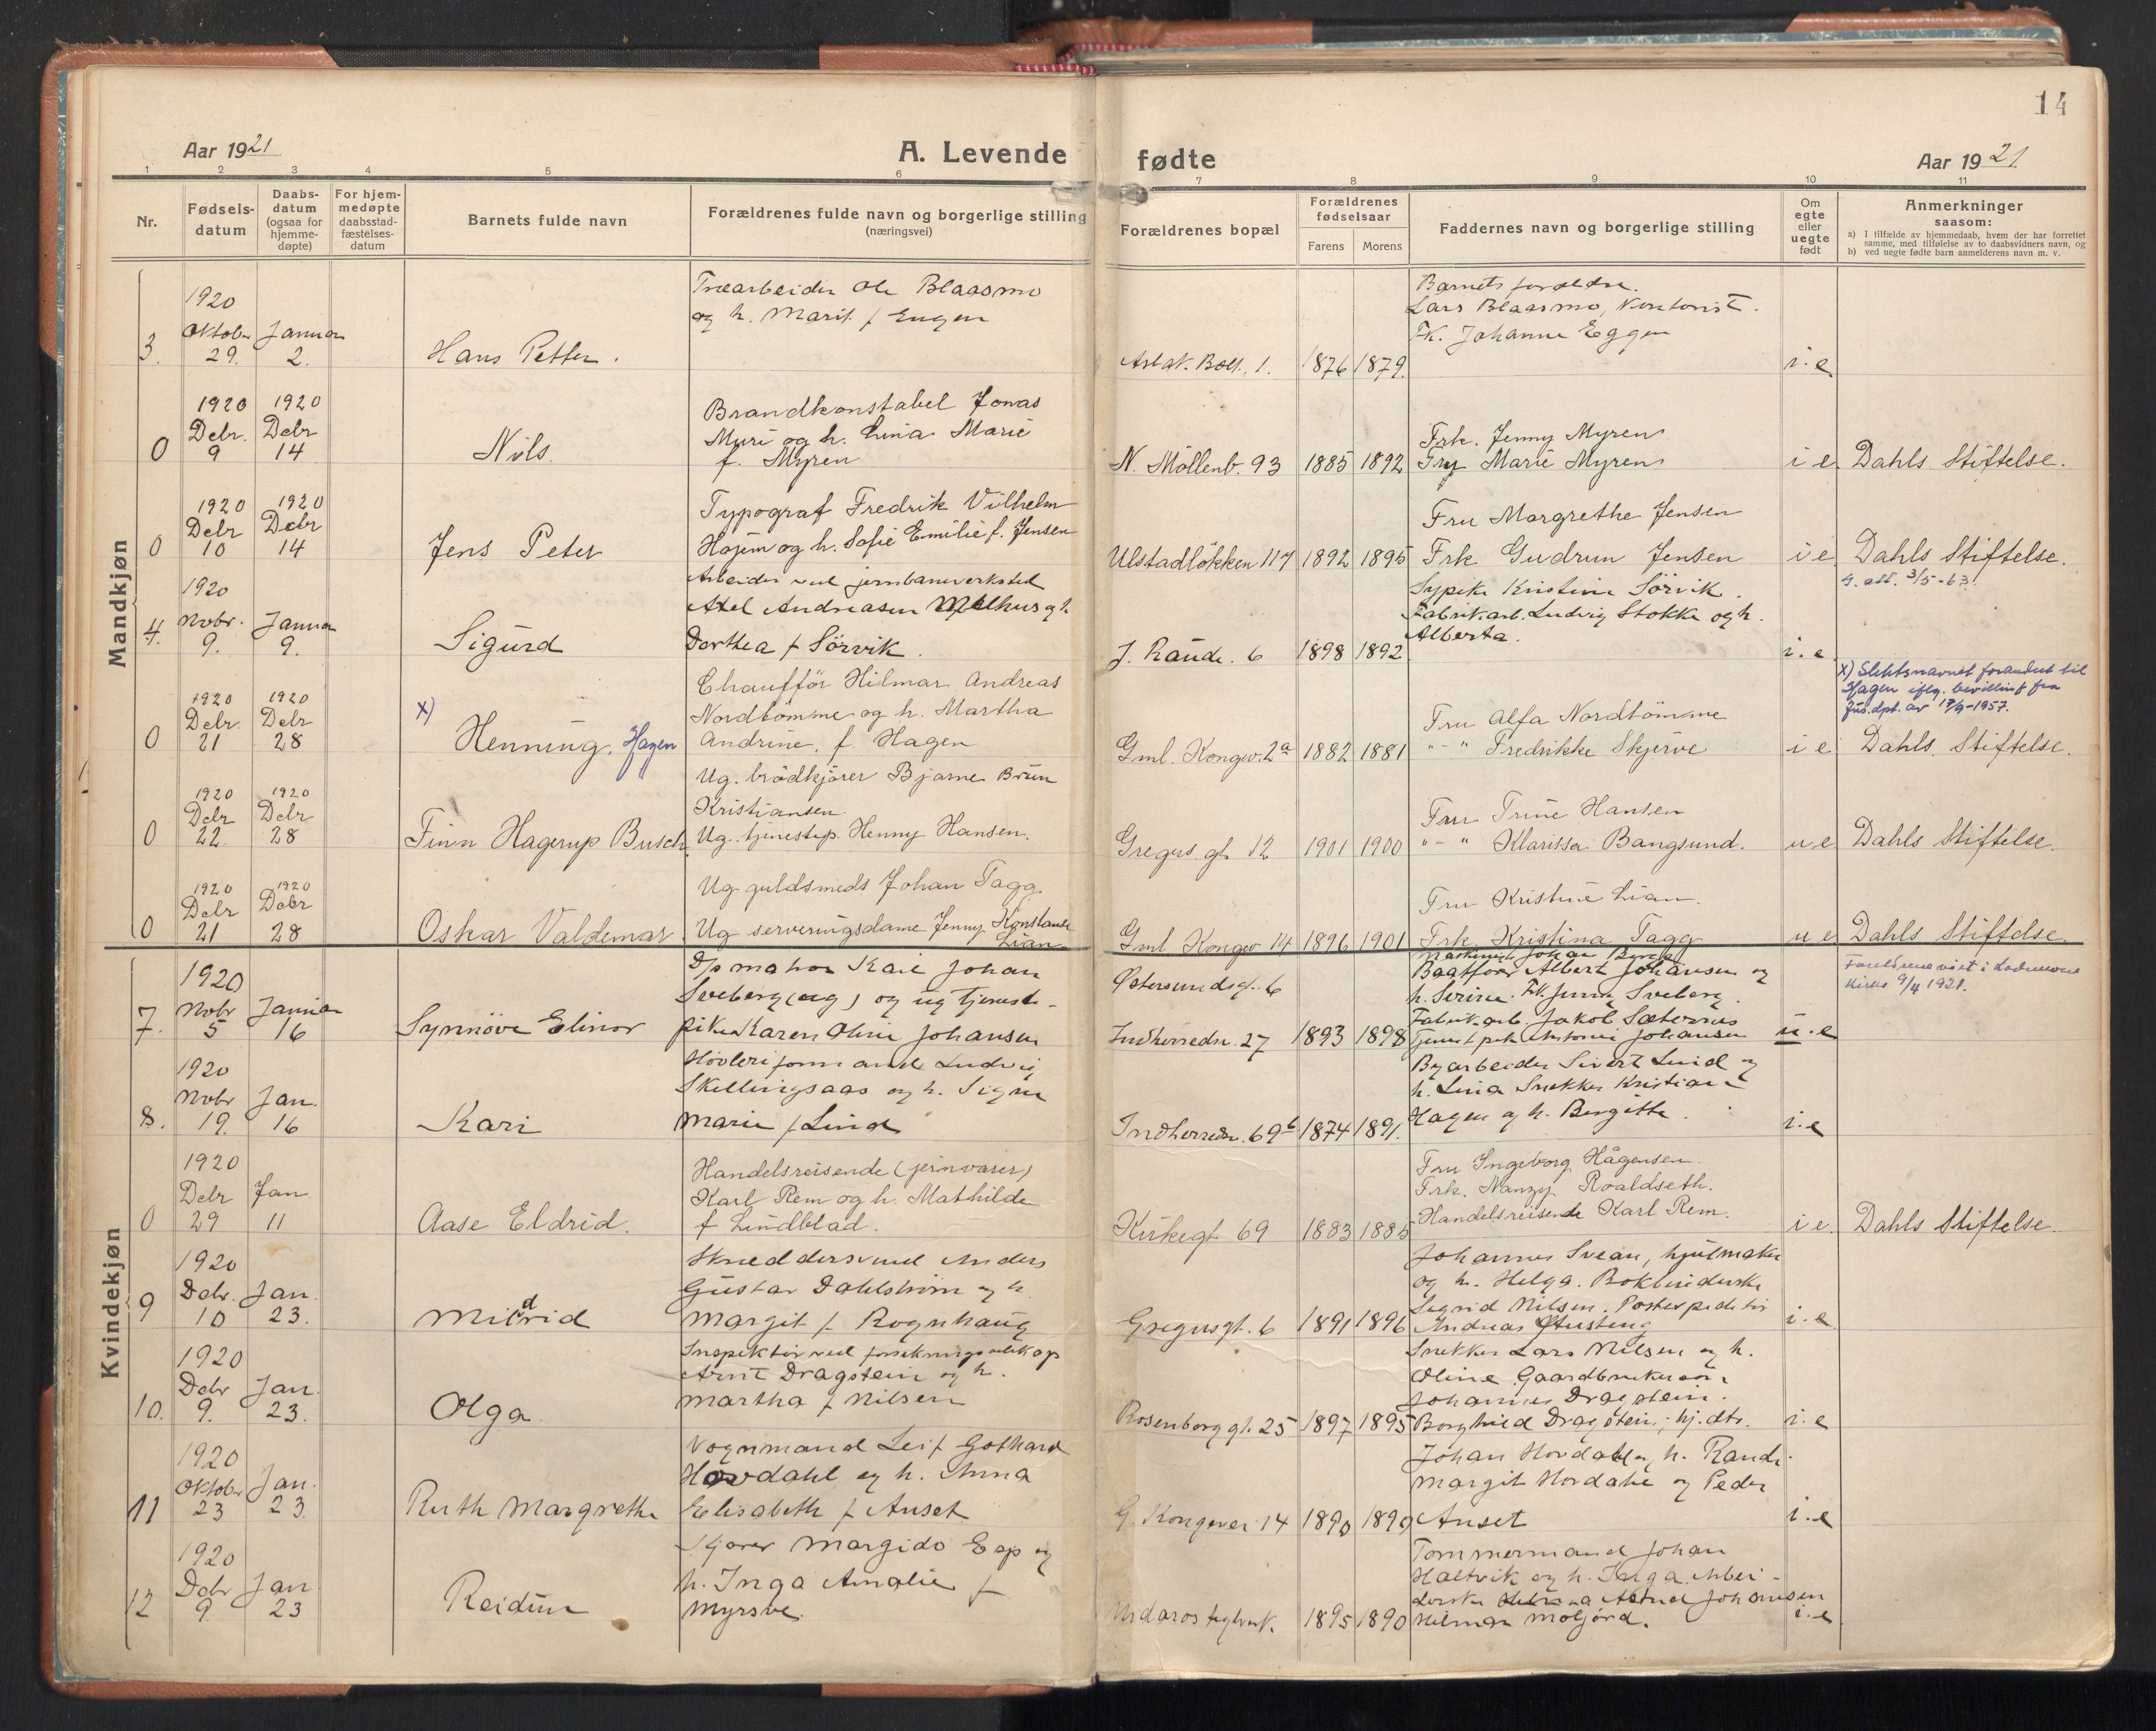 14
Aar 1921
A. Levende fødte
Aar 1921
1 2 3 4 5 6 7 8 9 10 11
Nr.
Fødsels-
datum
Daabs-
datum
(ogsaa for
hjemme-
døpte)
For hjem-
medøpte
daabsstad-
fæstelses-
datum
Barnets fulde navn
Forældrenes fulde navn og borgerlige stilling
(næringsvei)
Forældrenes bopæl
Forældrenes
fødselsaar
Farens
Morens
Faddernes navn og borgerlige stilling
Om
egte
eller
uegte
født
Anmerkninger
saasom:
a) I tilfælde av hjemmedaab, hvem der har forrettet
samme, med tilføielse av to daabsvidners navn, og
b) ved uegte fødte barn anmelderens navn m. v.
Mandkjøn
3.
1920
Oktober
29.
Januar
2.
Hans Petter.
Træarbeider Ole Blaasmo
og h. Marit f Engen
Aslak Bolt. 1.
1876
1879.
Barnets forældre.
Lars Blaasmo, Kontorist.
Fk. Johanne Eggen
i. e.
0
1920
Debr.
9
1920
Debr
14
Nils.
Brandkonstabel Jonas
Myri og h. Lina Marie
f. Myren
N. Möllenb. 93
1885
1892
Frk. Jenny Myren
Fru Marie Myren
i e.
Dahls Stiftelse.
0
1920
Debr
10
1920
Debr
14
Jens Peter
Typograf Fredrik Vilhelm
Hojem og h. Sofie Emilie f. Jensen
Ulstadløkken 117
1892
1895
Fru Margrethe Jensen
Frk Gudrun Jensen
i e.
Dahls Stiftelse.
. att. 3/5-63.
4.
1920
Nobr.
9.
Januar
9.
Sigurd
Arbeider ved jernbaneverksted
Axel Andreasen Melhus og h.
Dorthea f Sörvik.
J. Rande. 6
1898
1892
Sypike Kristine Sörvik.
Fabrik.arb. Ludvig Stokke og h.
Alberta.
i. e
0
1920
Debr.
21
1920
Debr
28
x)
Henning. Hagen
Chauffør Hilmar Andreas
Nordtömme og h. Martha
Andrine, f. Hagen
Gml. Kongev. 2a
1882
1881
Fru Alfa Nordtömme
"-" Fredrikke Skjerve
i e
x) Slektsnavnet forandret til
Hagen iflg. bevilling fra
Jus.dpt. av 17/9-1957.
Dahls Stiftelse.
0
1920
Debr
22.
1920
Debr
28
Finn Hagerup Busch.
Ug. brödkjører Bjarne Brun
Kristiansen.
Ug. tjenestep. Henny Hansen.
Gregus gt 12
1901
1900
Fru Trine Hansen
"-" Klarissa Bangsund.
u e
Dahls Stiftelse.
0
1920
Debr
21
1920
Debr
28
Oskar Valdemar.
Ug guldsmeds Johan Tagg.
Ug serveringsdame Jenny Konstanse
Lian
Gml Kongev 14
1896
1901
Fru Kristine Lian.
Frk. Kristina Tagg
u e
Dahls Stiftelse.
Kvindekjøn
7.
1920
Nobr
5
Januar
16
Synnöve Elinor
Kaie Johan
Sveberg (ug) og ug tjeneste-
pike Karen Oline Johansen
Østersundsgt. 6
Indherredsv. 27
1893
1898
Baatfører Albert Johansen og
h. Serine. Fk. Jenny Sveberg.
Fabrik.arb. Jakob Sæternes
Tjenest.pike Antonie Johansen
u. e
Foreldrene viet i Lademoens
kirke 9/4 1921.
8.
1920
Nobr
19.
Jan.
16
Kari
Høvleriformand Ludvig
Skillingsaas og h. Signe
Marie f Lind
Indherredsv. 69b
1874
1891.
Byarbeider Sivert Lind og
h. Lina Snekker Kristian
Hagen og h. Bergitte.
i. e
0
1920
Debr
29
Jan
11
Aase Eldrid.
Handelsreisende (jernvarer)
Karl Rem og h. Mathilde
f Lindblad.
Kirkegt 69
1883
1885
Fru Ingeborg Hågensen.
Frk. Nanzy Roaldseth.
Handelsreisende Karl Rem.
i e.
Dahls Stiftelse.
9
1920
Debr.
10
Jan.
23.
Mildrid
Skreddersvend Anders
Gustav Dahlström og h.
Margit f Rognhaug
Gregusgt. 6
1891
1896
Johannes Svean, hjulmaker
og h. Helga. Bokbinderske
Sigrid Nilsen. Postexpeditør
Andreas
i. e.
10.
1920
Debr
9.
Jan.
23.
Olga
Inspektör ved forsikringsselskap
Arnt Dragstein og h.
Martha f Nilsen
Rosenborg gt. 25
1897
1895
Snekker Lars Nilsen og h.
Oline Gaardbruker
Johannes Dragstein.
Borghild Dragstein, hj. dtr.
i. e
11
1920
Oktober
23
Jan.
23.
Ruth Margrethe
Vognmand Leif Gothard
Hovdahl og h. Anna
Elisabeth f Auset
G. Kongevei 14
1890
1890
Johan Hovdahl og h. Randi.
Margit Hovdahl og Peder
Auset
i. e
12
1920
Debr
9.
Jan
23
Reidun
Kjører Margido Esp og
h. Inga Amalie f
Myrsve.
Nidaros teglverk.
1895
1890
Tømmermand Johan
Haltvik og h. Inga. Arbei-
derske Astrid Johansen
Hilmar Moljord.
i. e